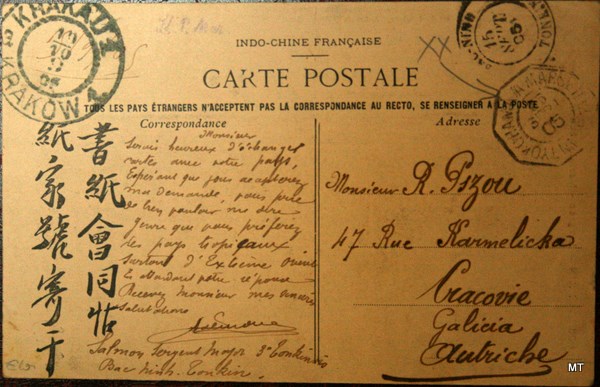 KRAKAU 2
KRAKÓW
INDO-CHINE FRANÇAISE
XX
TONKIN
15
CARTE POSTALE
TOUS LES PAYS ÉTRANGERS N'ACCEPTENT PAS LA CORRESPONDANCE AU RECTO, SE RENSEIGNER A LA POSTE
Correspondance
Monsieur
Serais heureux d'échanger
cartes avec votre pays,
Espérant que vous accepterez
ma demande, vous prie
de bien vouloir me dire
genre que vous préférez
les pays tropicaux
Surtout d'Extrême Orient
En attendant votre réponse
Recevez Monsieur mes sincères
Salutations
Salmon Sergent Major 3e Tonkinois
Bac Ninh Tonkin
書紙會同帖
紙家號寄于
Adresse
Monsieur R. Pszou
47 Rue Karmelicka
Cracovie
Galicia
Autriche
MT